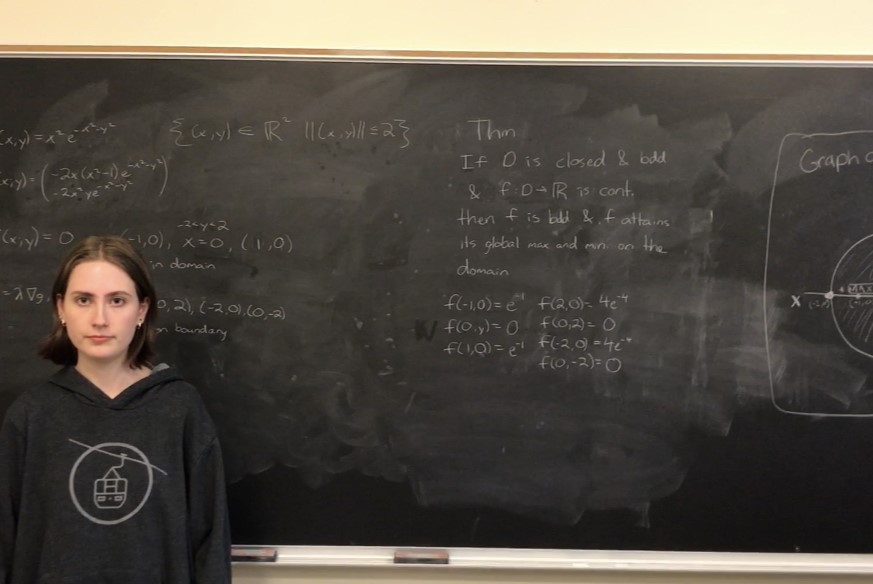 (x,y) = x² e^{-x²-y²}
{(x,y) ∈ ℝ² ||(x,y)|| ≤ 2}
(x,y) = ( -2x(x²-1)e^{-x²-y²}
-2x²ye^{-x²-y²} )
-2≤y≤2
(x,y) = 0 (-1,0), x=0, (1,0)
in domain
= λ∇g, 0,2), (-2,0), (0,-2)
on boundary
Thm
If D is closed & bdd
& f: D→ℝ is cont.
then f is bdd & f attains
its global max and min on the
domain
f(-1,0) = e⁻¹ f(2,0) = 4e⁻⁴
f(0,y) = 0 f(0,2) = 0
f(1,0) = e⁻¹ f(-2,0) = 4e⁻⁴
f(0,-2) = 0
Graph
x